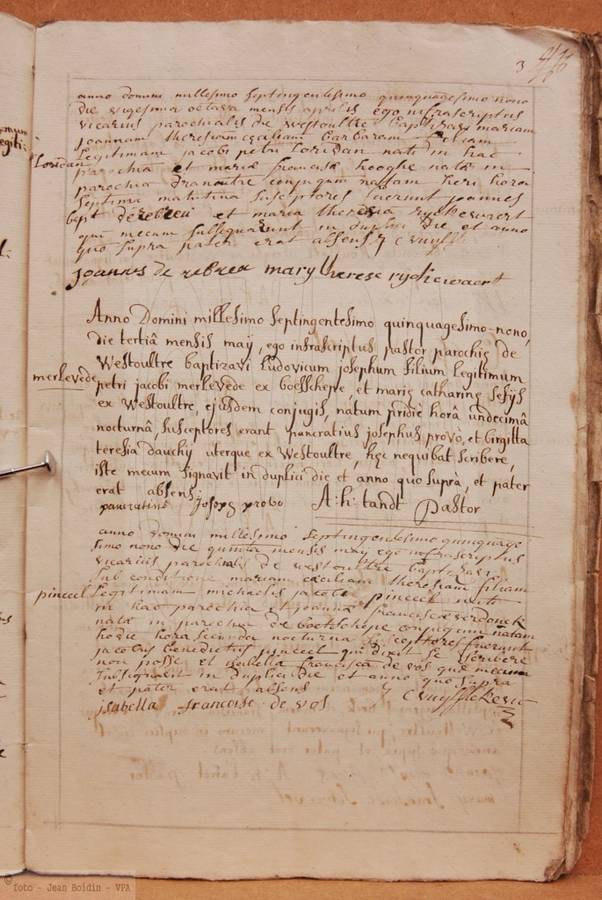 3
anno domini millesimo septingentesimo quinquagesimo nono
die vigesima octava mensis aprilis ego infrascriptus
vicarius parochialis de westoultre baptizavi mariam
joannam theresiam ceciliam barbaram filiam
Loridan
legitimam jacobi petri Loridan nati in hac
parochia et mariæ franciscæ hooghe natæ in
parochia dranoutre conjugum natam heri hora
septima matutina susceptores fuerunt joannes
bapt derebreu et maria theresia ryckewaert
qui mecum subsignarunt in duplici die et anno
quo supra pater erat absens
joannes de rebreu mary therese ryckewaert
Anno Domini millesimo septingentesimo quinquagesimo-nono,
die tertiâ mensis maij, ego infrascriptus pastor parochiæ de
Westoultre baptizavi Ludovicum josephum filium legitimum
merlevede
petri jacobi merlevede ex boesschepe, et mariæ catharinæ
ex Westoultre, ejusdem conjugis, natum pridie horâ undecimâ
nocturnâ, susceptores erant pancratius josephus provo, et birgitta
teresia dauchij uterque ex Westoultre, hæc nequibat scribere,
iste mecum signavit in duplici die et anno quo suprà, et pater
erat absens.
pancratius Joseph provo A: h: tandt Pastor
anno domini millesimo septingentesimo quinquage
simo nono die quinta mensis may ego infrascriptus
vicarius parochialis de westoultre baptizavi
sub conditione mariam ceciliam theresiam filiam
pinceel
legitimam michaelis jacobi pinceel nati
in hac parochia et joannæ franciscæ verdonck
natæ in parochia de boesschepe conjugum natam
hodie hora secunda nocturna susceptores fuerunt
jacobus benedictus pinceel qui dixit se scribere
non posse et isabella francisca de vos quæ mecum
subsignavit in duplici die et anno quo supra
et pater erat absens
isabella francoise de vos
© foto - Jean Boidin - VPA